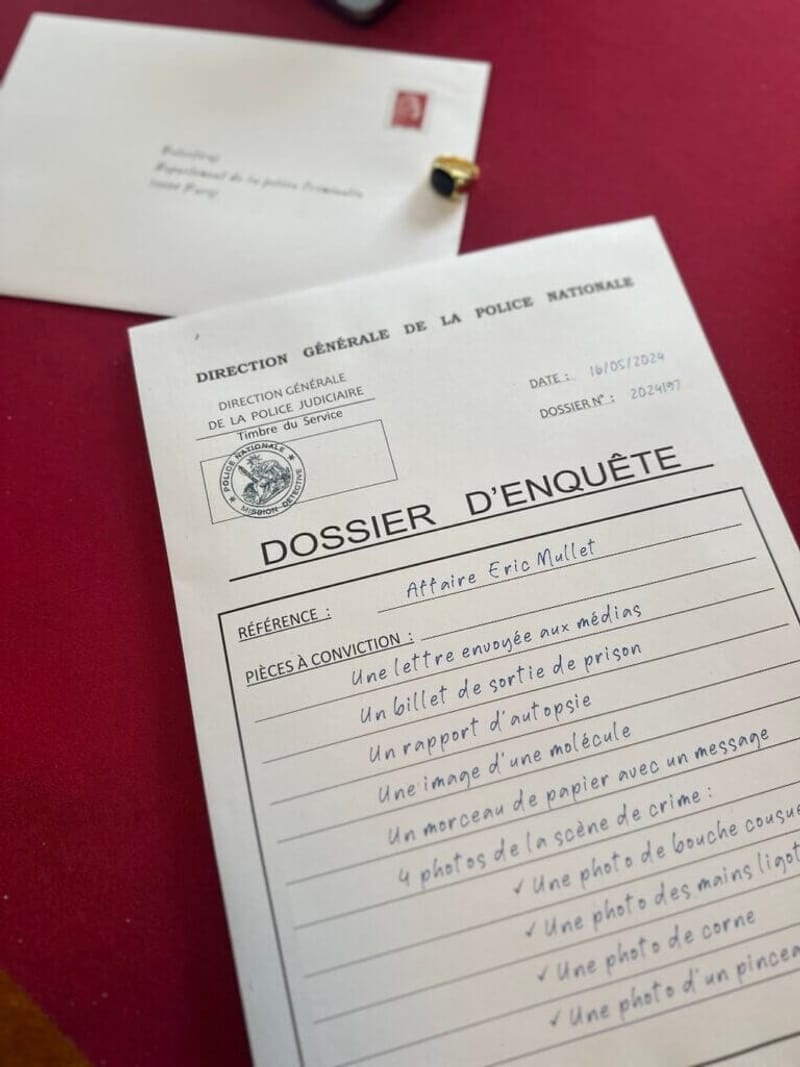 Département de la police Criminelle
DIRECTION GÉNÉRALE DE LA POLICE NATIONALE
DIRECTION GÉNÉRALE
DE LA POLICE JUDICIAIRE
Timbre du Service
POLICE NATIONALE
MISSION DETECTIVE
DATE : 16/05/2024
DOSSIER N° : 2024197
DOSSIER D'ENQUÊTE
RÉFÉRENCE : Affaire Eric Mullet
PIÈCES À CONVICTION :
Une lettre envoyée aux médias
Un billet de sortie de prison
Un rapport d'autopsie
Une image d'une molécule
Un morceau de papier avec un message
4 photos de la scène de crime :
✓ Une photo de bouche cousue
✓ Une photo des mains ligot
✓ Une photo de corne
✓ Une photo d'un pincea